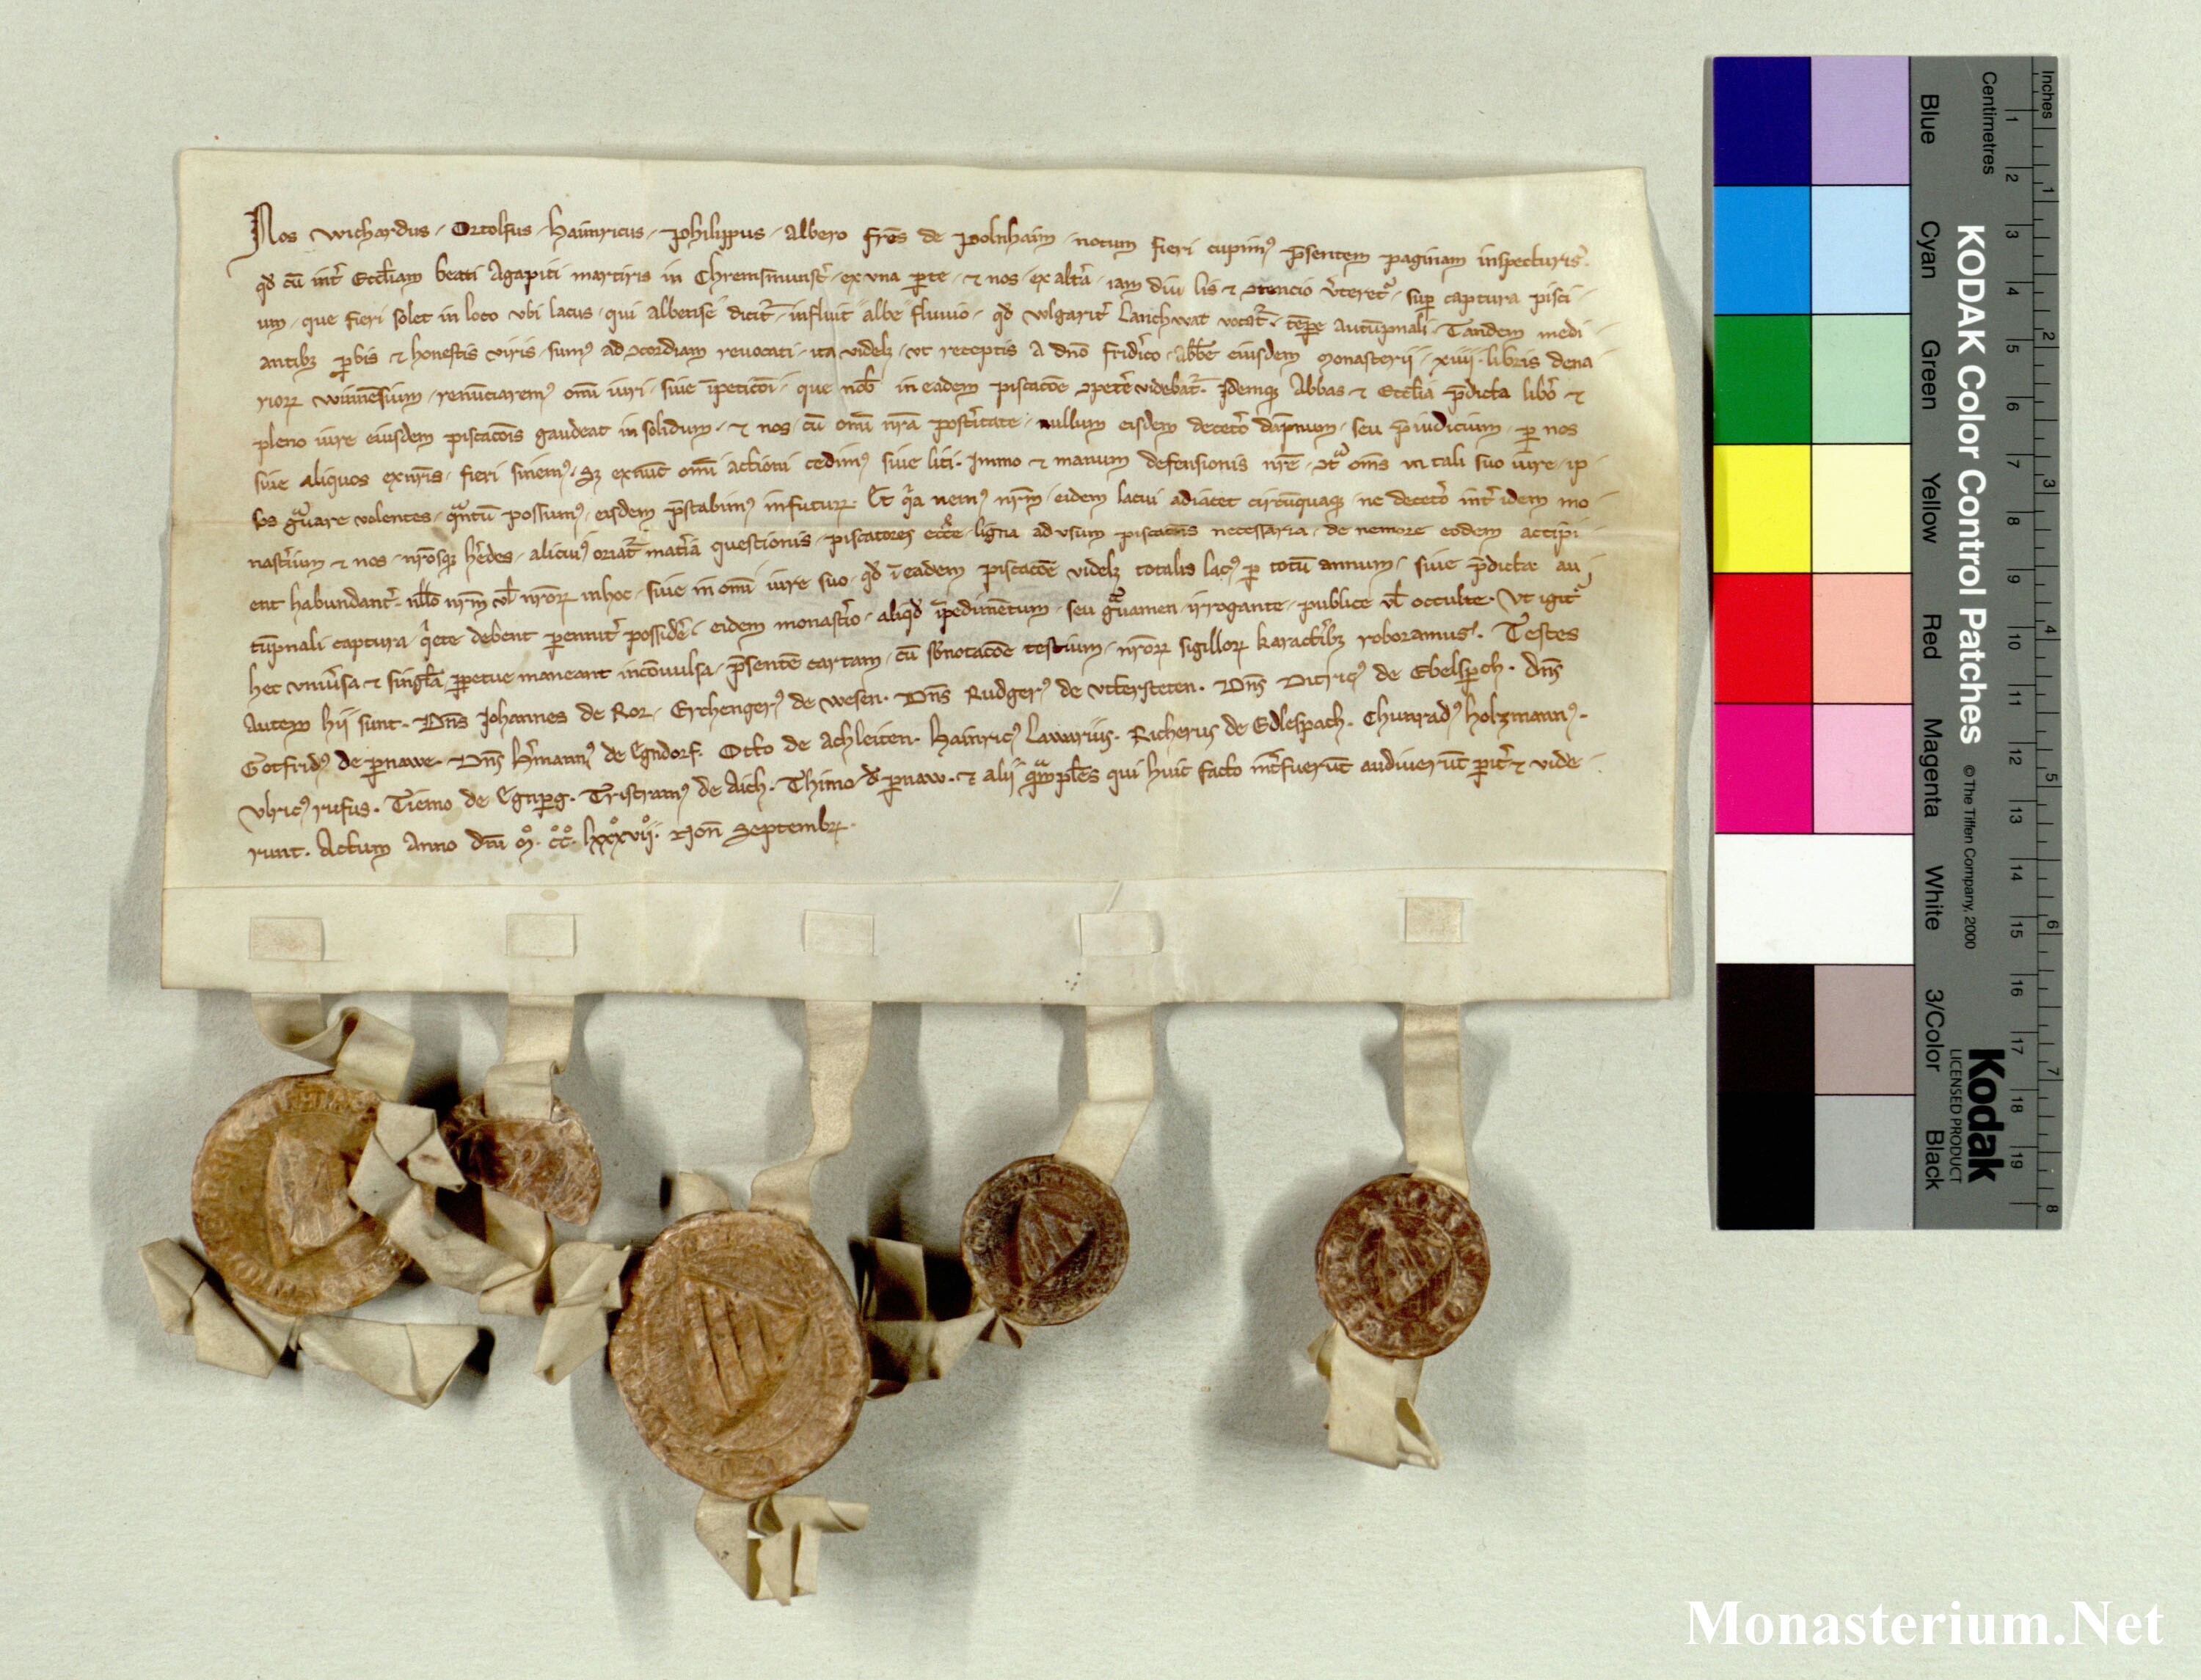 Nos Wichardus Ortolfus Hainricus Philippus Albero fr̄es de Polnhaim notum fieri cupim⁹ p̄sentem paginam inspecturis
qd̄ cū int̓ Eccl̄iam beati Agapiti martiris in Chremsmunst̓ ex una ꝑte ⁊ nos ex alt̓a iam diu lis ⁊ ꝯtencio v̓teret᷑ suꝑ captura pisci
um que fieri solet in loco ubi lacus qui Albense dicit᷑ influit albe fluvio qd̄ vulgarit̓ vocat᷑ tēꝑe autūpnali Tandem medi
antibȝ ꝓbis ⁊ honestis viris sum⁹ ad ꝯcordiam revocati ita videlȝ ut receptis a dn̄o frid̓ico abb̄e eiusdem monasterii xiiii libris dena
rioꝝ winnēsium renūciarem⁹ om̄i iuri sive īpeticōi que nob̄ in eadem piscacōe ꝯpet̓e videbat᷑ Idemqȝ Abbas ⁊ Eccl̄ia p̄dicta lib̓o ⁊
pleno iure eiusdem piscacōis gaudeat in solidum ⁊ nos cū om̄i nr̄a post̓itate nullum eisdem decet̓o dāpnum seu p̄iudicium ꝑ nos
sive aliquos ex nr̄is fieri sinem⁹ Sȝ exnūc om̄i actioni cedim⁹ sive liti Immo ⁊ manum defensionis nr̄e ꝯtᷓ om̄s in tali suo iure ip
sos gᷓvare volentes qᷓntū possum⁹ eisdem p̄stabim⁹ in futuꝝ Et q̓a nem⁹ nr̄m eidem lacui adiacet circūquaqȝ ne decet̓o int̓ idem mo
nast̓ium ⁊ nos nr̄osqȝ h̓edes alicui⁹ oriat᷑ mat̓ia questionis piscatores ligna ad usum piscacōis necessaria de nemore eodem accipi
ent habundant̓ null̄o nr̄m vl̄ nr̄oꝝ in hoc sive in om̄i iure suo qd̄ ī eadem piscacōe videlȝ totalis lac⁹ ꝑ totū annum sive p̄dicta au
tūpnali captura q̓ete debent ꝑennit̓ possid̓e eidem monast̓io aliqd̄ īpedimētum seu gᷓvamen irrogante publice vl̄ occulte Ut igit᷑
hec univ̓sa ⁊ singl̄a ꝑpetue maneant incōvulsa p̄sentē cartam cū sb̓notacōe testium nr̄oꝝ sigilloꝝ karact̓ibȝ roboramus. Testes
autem hii sunt. Dn̄s Johannes de Ror Erchenger⁹ de Wesen. Dn̄s Rudger⁹ de Utcersteten. Dn̄s Ditric⁹ de Ebelsꝑch. Dn̄s
Gotfrid⁹ de ꝑnawe. Dn̄s H̓mann⁹ de Egndorf. Otto de Achleiten. Hainric⁹ Lavarius. Richerus de Edlespach. Chunrad⁹ Holzmann⁹.
Ulric⁹ rufus. Tiemo de Egnꝑg. Tristram⁹ de Aich. Thimo d̄ ꝑnaw. ⁊ alii qui huic facto int̓fuerūt audiverūt ꝑit̓ ⁊ vide
runt. Actum Anno dn̄i M̊. c̊c̊. lxxxvii̊. Non̄ Septembꝝ.
KODAK Color Control Patches
© The Tiffen Company, 2000
Kodak
LICENSED PRODUCT
Blue Cyan Green Yellow Red Magenta White 3/Color Black
Centimetres 1 2 3 4 5 6 7 8 9 10 11 12 13 14 15 16 17 18 19
Inches 1 2 3 4 5 6 7 8
Monasterium.Net